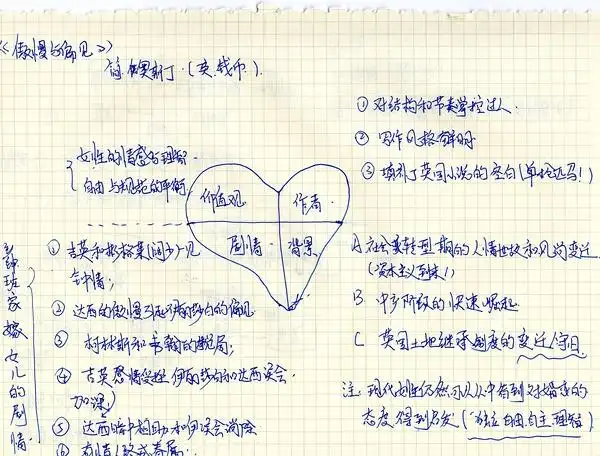 《傲慢与偏见》
简·奥斯丁·(英.钱币).
女性的情感与理智.
自由与规范的平衡
价值观
作者.
剧情
背景
① 对结构和节奏掌控过人.
② 写作风格鲜明.
③ 填补了英国小说的空白(单枪匹马!)
A. 社会转型期的人情世故和风俗变迁
(资本主义到来!)
B. 中产阶级的快速崛起
C 英国土地继承制度的变迁/守旧.
注: 现代女性仍然可以从中得到对婚恋的
态度得到启发("独立自由自主理智)
班家嫁女儿的剧情
① 吉英和彬格莱(阔少)一见
钟情;
② 达西的傲慢引起伊丽莎白的偏见
③ 柯林斯和的骗局;
④ 吉英恩情受挫 伊丽莎白和达西误会
加深;
⑤ 达西暗中相助 和伊误会消除
⑥ 有情人终成眷属.